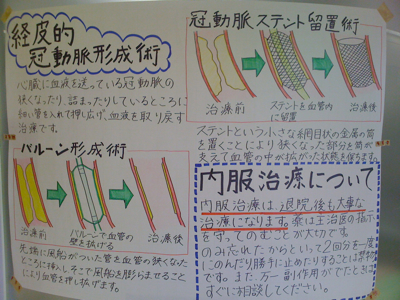 経皮的
冠動脈形成術
心臓に血液を送っている冠動脈の
狭くなったり、詰まったりしているところに
細い管を入れて押し広げ、血液を取り戻す
治療です。
バルーン形成術
治療前
バルーンで血管の
壁を拡げる
治療後
先端に風船がついた管を血管の狭くなっ
たところに挿入し、そこで風船を膨らませること
により血管を押し拡げます。
冠動脈ステント留置術
治療前
ステントを血管内
に留置
治療後
ステントという小さな網目状の金属の筒
を置くことにより狭くなった部分を筒が
支えて血管の中が拡がった状態を保ちます。
内服治療について
内服治療は、退院後も大事な
治療になります。薬は主治医の指示
を守ってのむことが大切です。
のみ忘れたからといって2回分を一度
にのんだり、勝手に止めたりすることは禁物
です。また万一副作用がでたときは、
すぐに相談してください。